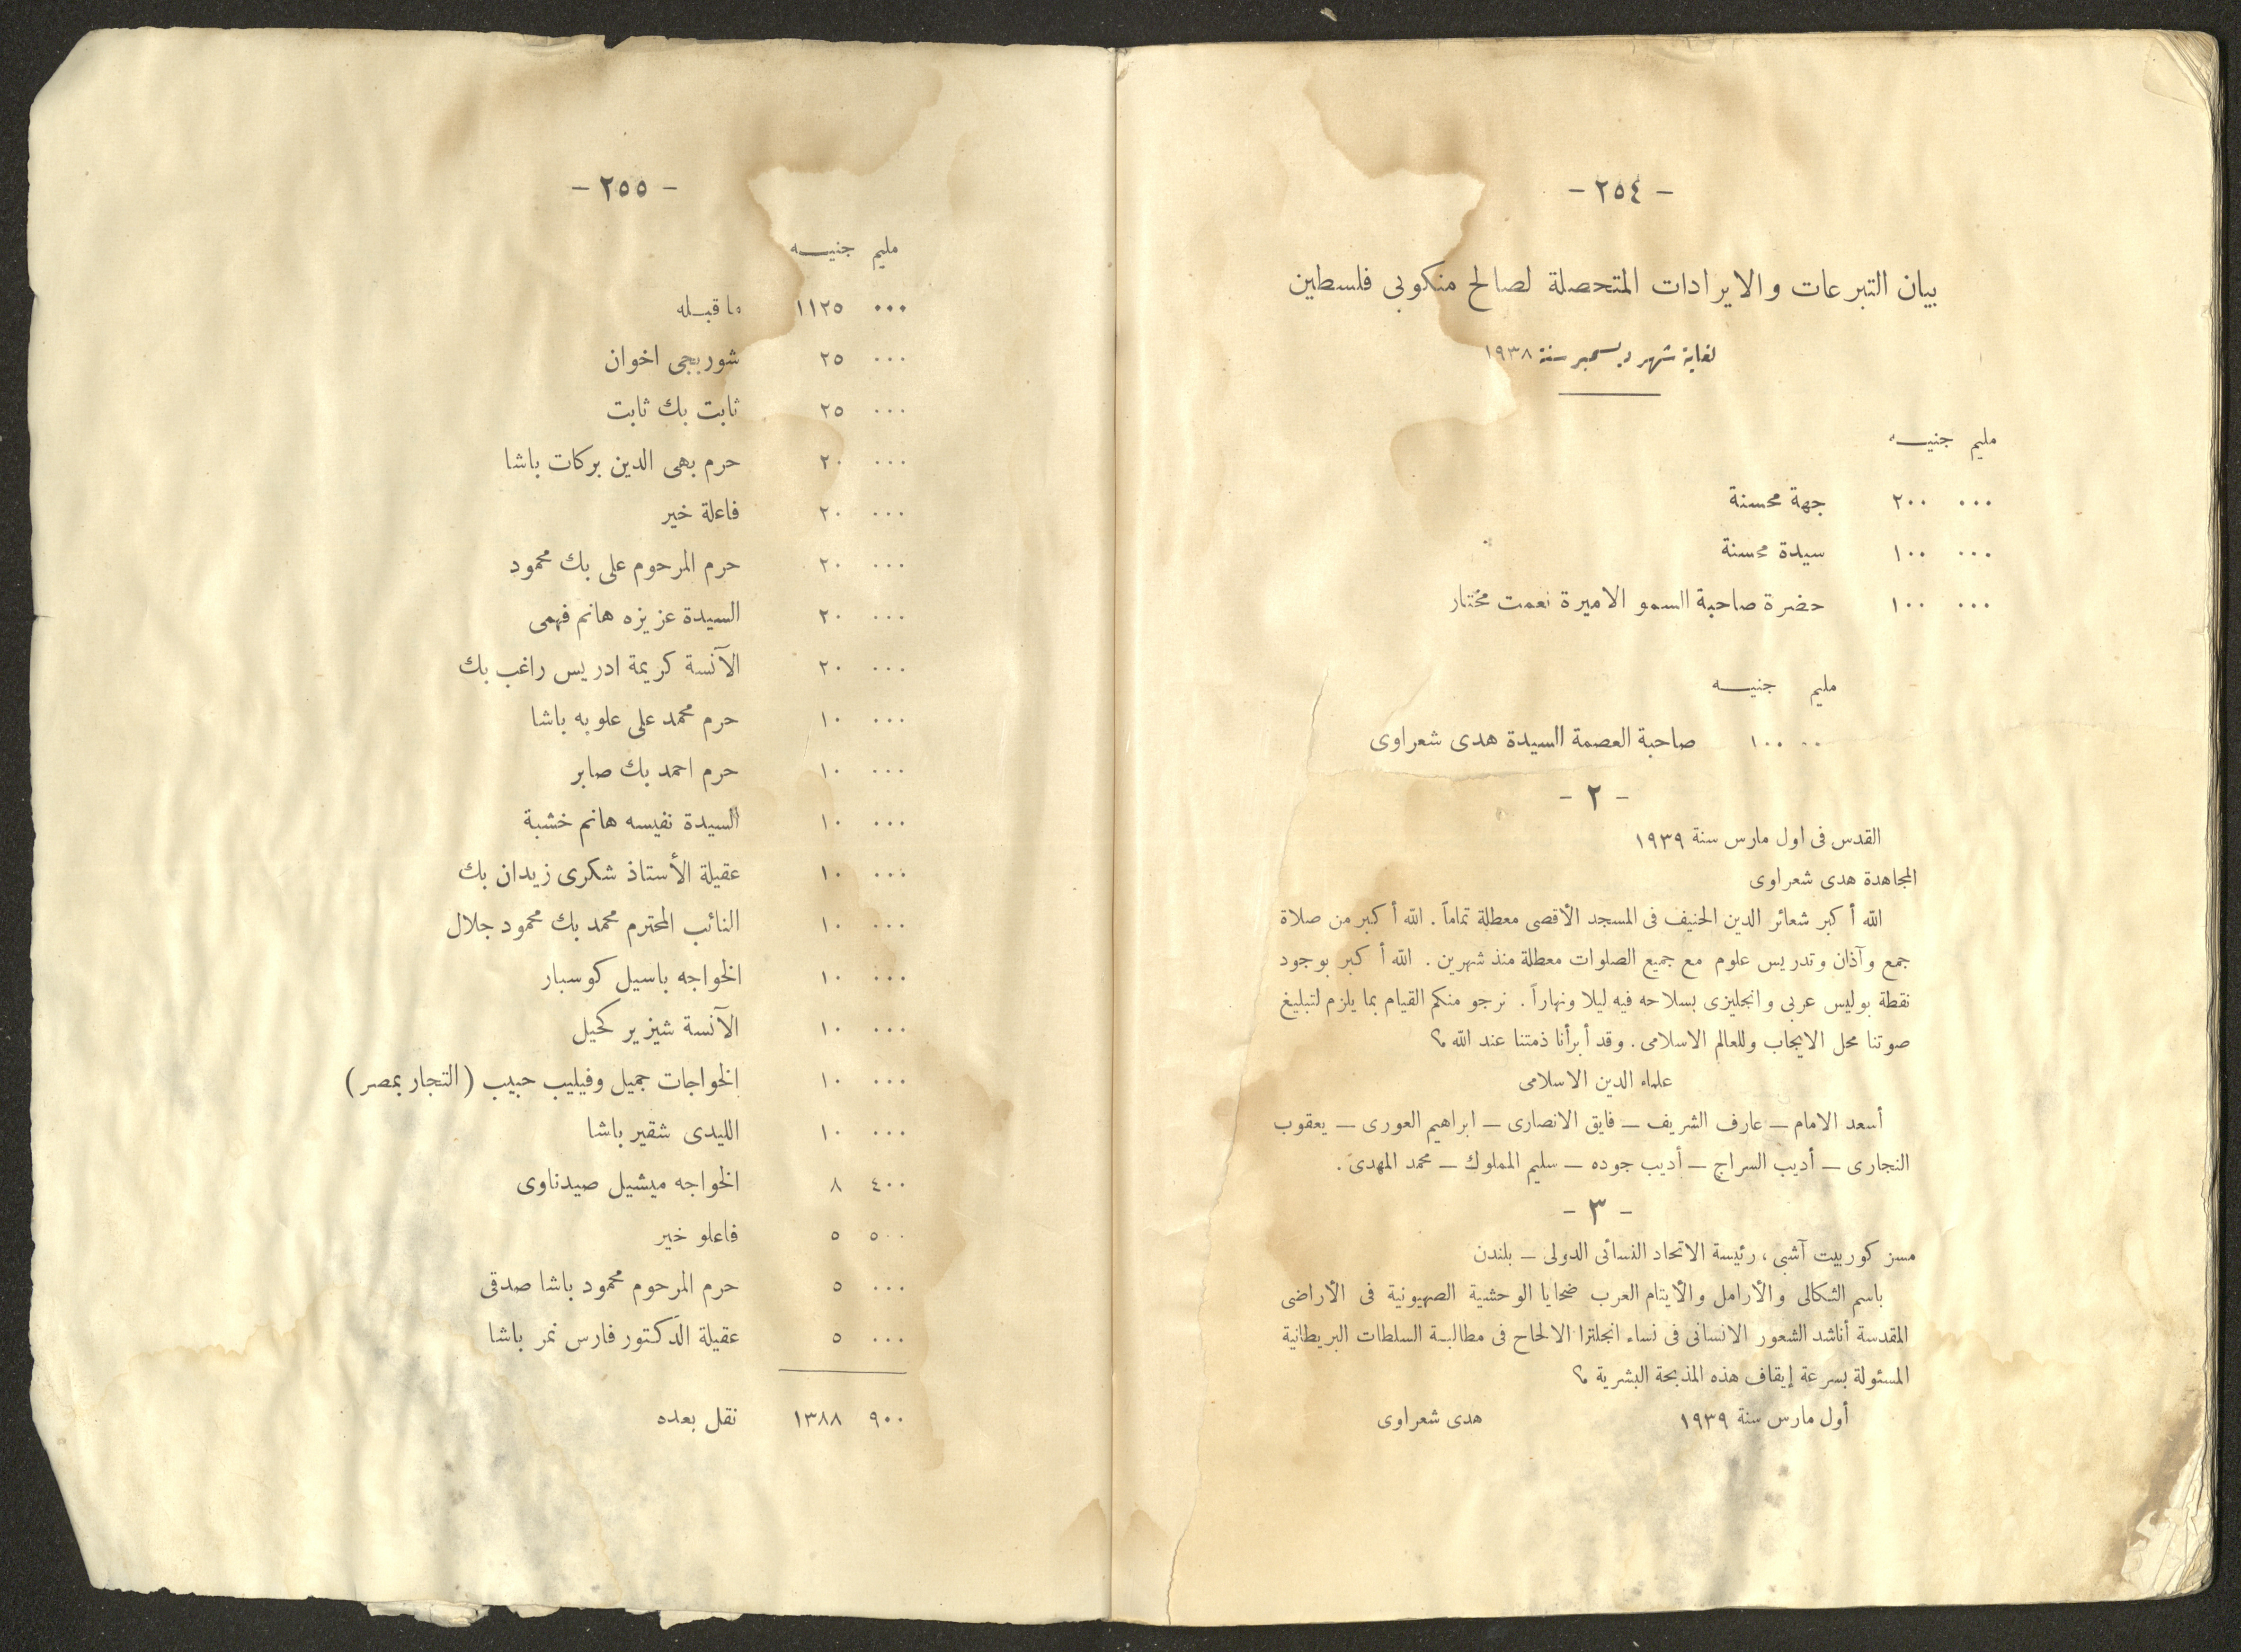 - ٢٥٤ -
بيان التبرعات والايرادات المتحصلة لصالح منكوبى فلسطين
لغاية شهر ديسمبر سنة ١٩٣٨
مليم جنيـه
٠٠٠ ٢٠٠ جهة محسنة
٠٠٠ ١٠٠ سيدة محسنة
٠٠٠ ١٠٠ حضرة صاحبة السمو الاميرة نعمت مختار
مليم جنيـه
٠٠ ١٠٠ صاحبة العصمة السيدة هدى شعراوى
- ٢ -
القدس فى اول مارس سنة ١٩٣٩
المجاهدة هدى شعراوى
الله أكبر شعائر الدين الحنيف فى المسجد الأقصى معطلة تماماً . الله أكبر من صلاة
جمع وآذان وتدريس علوم مع جميع الصلوات معطلة منذ شهرين . الله أكبر بوجود
نقطة بوليس عربى وانجليزى بسلاحه فيه ليلا ونهاراً . نرجو منكم القيام بما يلزم لتبليغ
صوتنا محل الايجاب وللعالم الاسلامى . وقد أبرأنا ذمتنا عند الله ؟
علماء الدين الاسلامى
أسعد الامام — عارف الشريف — فايق الانصارى — ابراهيم العورى — يعقوب
النجارى — أديب السراج — أديب جوده — سليم المملوك — محمد المهدى .
- ٣ -
مسز كوربيت آشبى ، رئيسة الاتحاد النسائى الدولى — بلندن
باسم الثكالى والأرامل والأيتام العرب ضحايا الوحشية الصهيونية فى الأراضى
المقدسة أناشد الشعور الانسانى فى نساء انجلترا الالحاح فى مطالبـة السلطات البريطانية
المسئولة بسرعة إيقاف هذه المذبحة البشرية ؟
أول مارس سنة ١٩٣٩ هدى شعراوى
- ٢٥٥ -
مليم جنيـــه
٠٠٠ ١١٢٥ ما قبـله
٠٠٠ ٢٥ شوربجى اخوان
٠٠٠ ٢٥ ثابت بك ثابت
٠٠٠ ٢٠ حرم بهى الدين بركات باشا
٠٠٠ ٢٠ فاعلة خير
٠٠٠ ٢٠ حرم المرحوم على بك محمود
٠٠٠ ٢٠ السيدة عزيزه هانم فهمى
٠٠٠ ٢٠ الآنسة كريمة ادريس راغب بك
٠٠٠ ١٠ حرم محمد على علوبه باشا
٠٠٠ ١٠ حرم احمد بك صابر
٠٠٠ ١٠ السيدة نفيسه هانم خشبة
٠٠٠ ١٠ عقيلة الأستاذ شكرى زيدان بك
٠٠٠ ١٠ النائب المحترم محمد بك محمود جلال
٠٠٠ ١٠ الخواجه باسيل كوسبار
٠٠٠ ١٠ الآنسة شيزير كحيل
٠٠٠ ١٠ الخواجات جميل وفيليب حبيب (التجار بمصر)
٠٠٠ ١٠ الليدى شقير باشا
٤٠٠ ٨ الخواجه ميشيل صيدناوى
٥٠٠ ٥ فاعلو خير
٠٠٠ ٥ حرم المرحوم محمود باشا صدقى
٠٠٠ ٥ عقيلة الدكتور فارس نمر باشا
٩٠٠ ١٣٨٨ نقل بعده